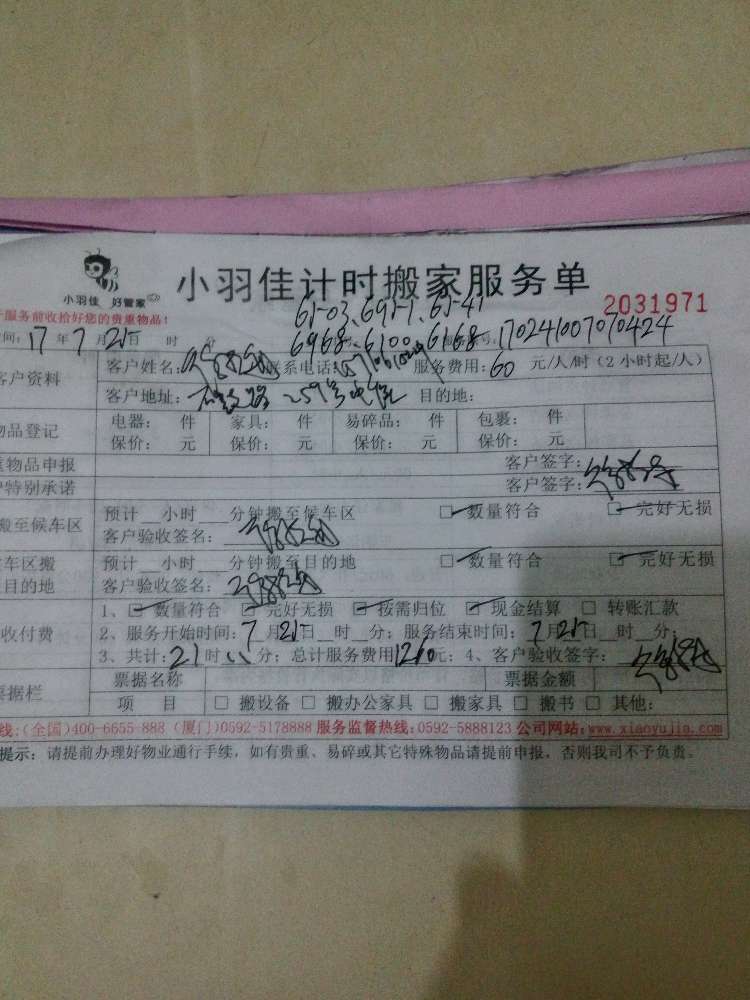 小羽佳 好管家
小羽佳计时搬家服务单
2031971
服务前收拾好您的贵重物品!
65-03、691-1、65-41
间:17年7月25日 时
6968、6100、6168 号:170241007070424
客户资料 客户姓名: 联系电话: 服务费用:60元/人/时(2小时起/人)
客户地址: 259号 目的地:
物品登记 电器: 件 家具: 件 易碎品: 件 包裹: 件
保价: 元 保价: 元 保价: 元 保价: 元
物品申报 客户签字:
特别承诺 客户签字:
搬至候车区 预计__小时___分钟搬至候车区 □数量符合 □完好无损
客户验收签名:
车区搬 预计__小时___分钟搬至目的地 □数量符合 □完好无损
目的地 客户验收签名:
收付费 1、□数量符合 □完好无损 □按需归位 □现金结算 □转账汇款
2、服务开始时间:7月25日__时__分;服务结束时间:7月25日__时__分;
3、共计:21时 分;总计服务费用1260元;4、客户验收签字:
票据栏 票据名称 票据金额
项 目 □搬设备 □搬办公家具 □搬家具 □搬书 □其他:
线:(全国)400-6655-888 (厦门)0592-5178888 服务监督热线:0592-5888123 公司网站:www.xiaoyujia.com
提示:请提前办理好物业通行手续,如有贵重、易碎或其它特殊物品请提前申报,否则我司不予负责。